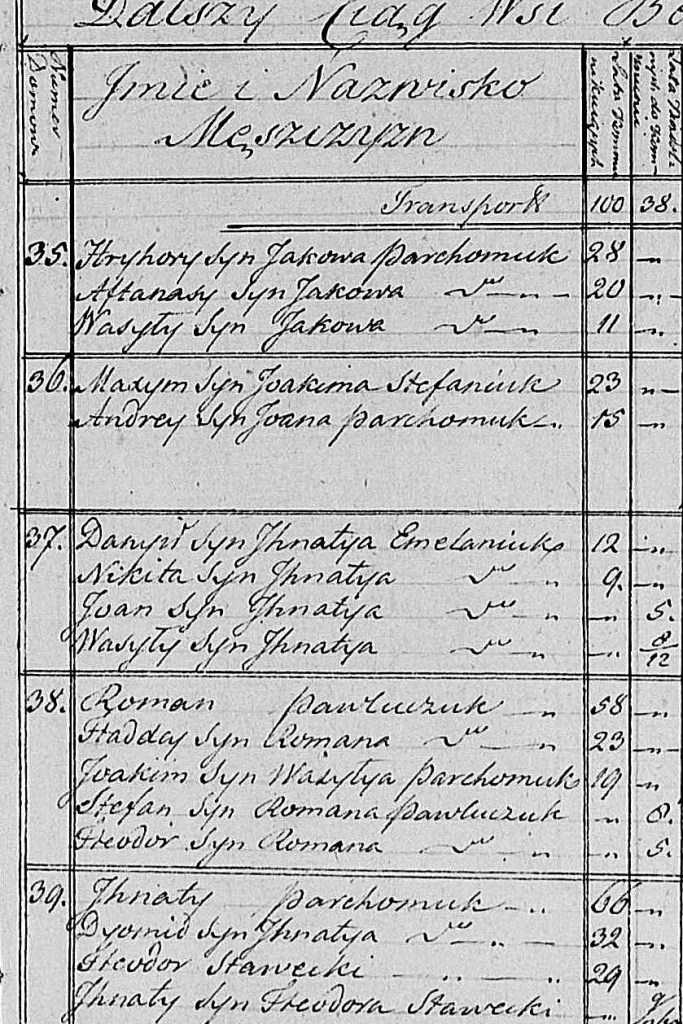 Dalszy Ciąg Wsi
Numer Domowa
Imie i Nazwisko
Męszczyzn
Transport 100 38.
35. Hryhory Syn Jakowa Parchomiuk 28 - „ -
Aftanasy Syn Jakowa do - „ - 20 „ -
Wasyły Syn Jakowa do - „ 11 - „
36. Maxym Syn Joakima Stefaniuk 23 „ -
Andrey Syn Joana Parchomiuk - „ 15 - „
37. Danyił Syn Jhnatya Emelaniuk 12 - „
Nikita Syn Jhnatya do „ 9. - „
Joan Syn Jhnatya do „ „ 5.
Wasyły Syn Jhnatya do „ „ 8/12
38. Roman Pawluczuk - „ 58 - „
Haddey Syn Romana do - „ 23 - „ -
Joakim Syn Wasyłya Parchomuk 19 - „
Stefan Syn Romana Pawluczuk „ 8.
Fteodor Syn Romana do „ „ 5.
39. Jhnaty Parchomuk - „ 66 - „
Dyomid Syn Jhnatya do „ - 32 - „
Fteodor Stawecki - „ „ - 29 - „
Jhnaty Syn Fteodora Stawecki - „